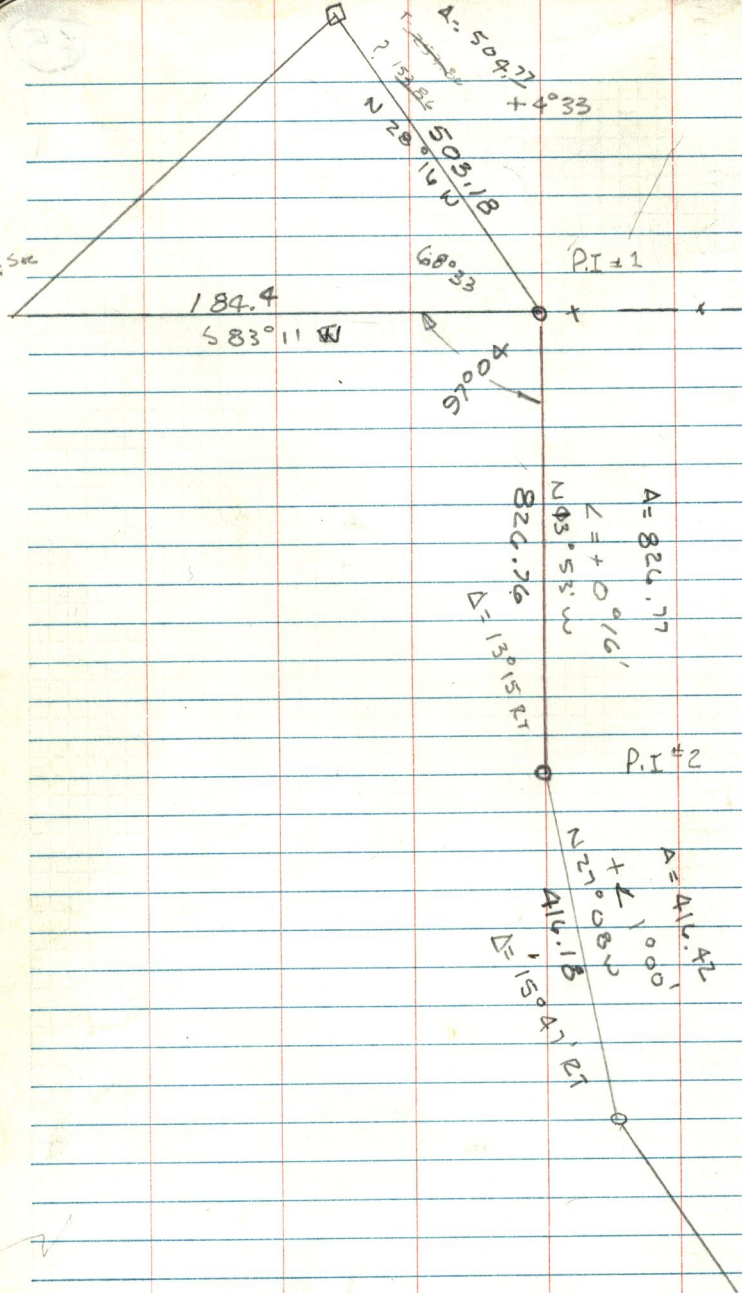 A= 504.77
+ 4°33
? 153.86
503.18
N 28°16 W
68°33
P.I #1
184.4
S 83°11 W
97°00
A= 826.77
∠ = + 0°16'
N 13°53' W
826.76
Δ= 13°15 RT
P.I #2
A= 416.42
+∠ 1°00'
N 27°08 W
416.18
Δ= 15°47' RT